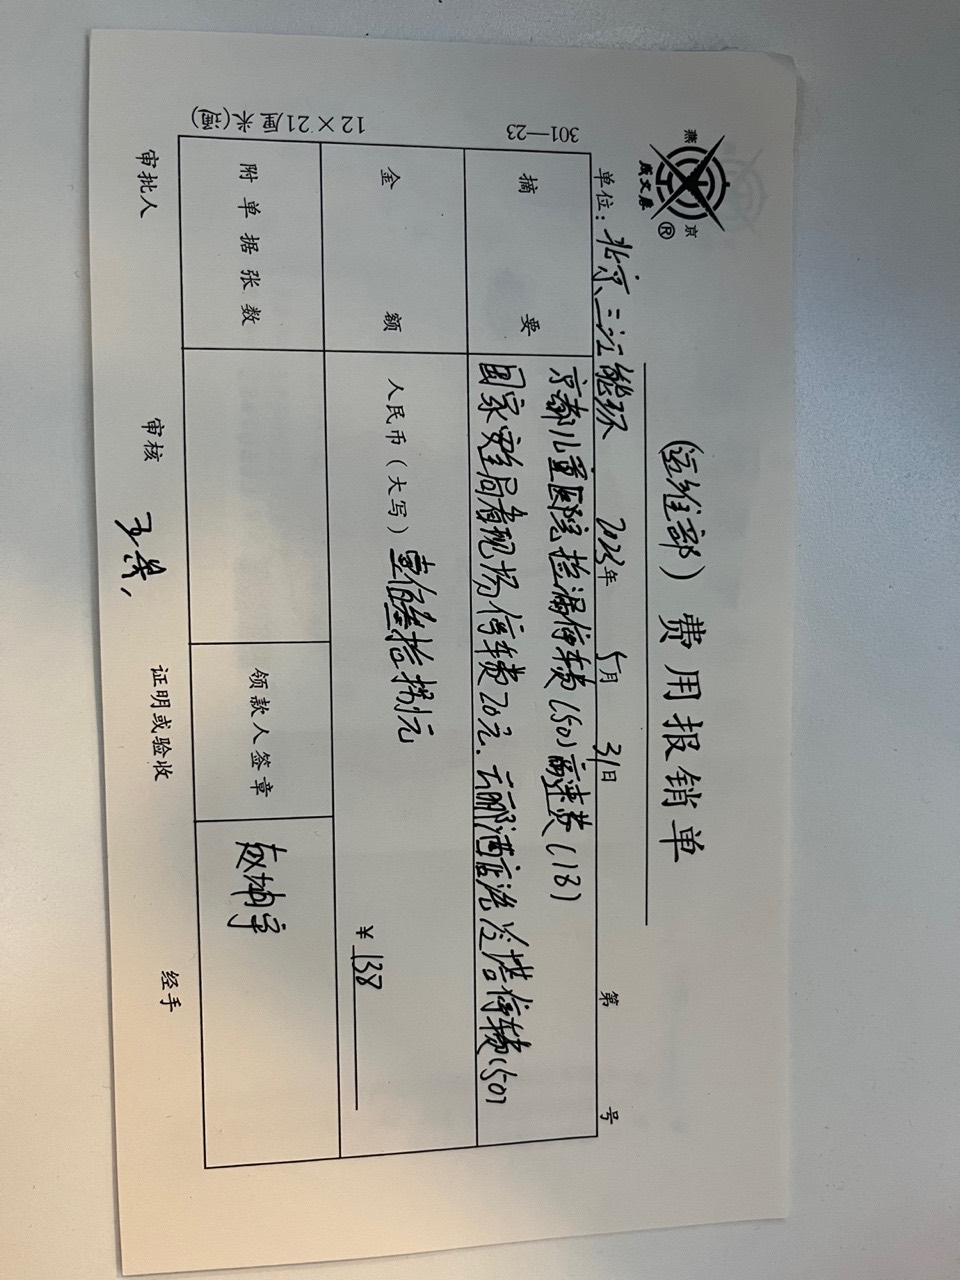 燕 京
成文厚 ®
(运维部) 费用报销单
单位: 北京三江能环 2023年 5月 31日 第 号
摘要 京都儿童医院捡漏停车费(50)高速费(18)
国家安全局看现场停车费20元、云丽酒店洗冷塔停车费(50)
金额 人民币(大写) 壹佰叁拾捌元 ¥ 138
附单据张数 领款人签章 赵坤宇
审批人 审核 证明或验收 经手
301—23
12×21厘米(通)